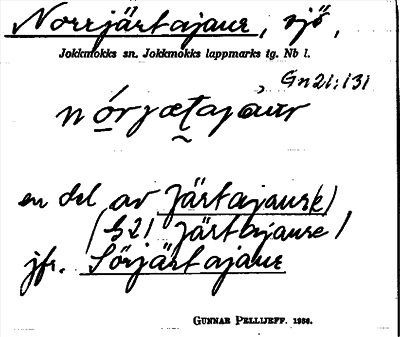 Norrjärtajaure, sjö,
Jokkmokks sn. Jokkmokks lappmarks tg. Nb l.
Gn 21:131
en del av Järtajaure(k)
Järtajaure)
jfr. Sörjärtajaur
GUNNAR PELLIJEFF. 1936.